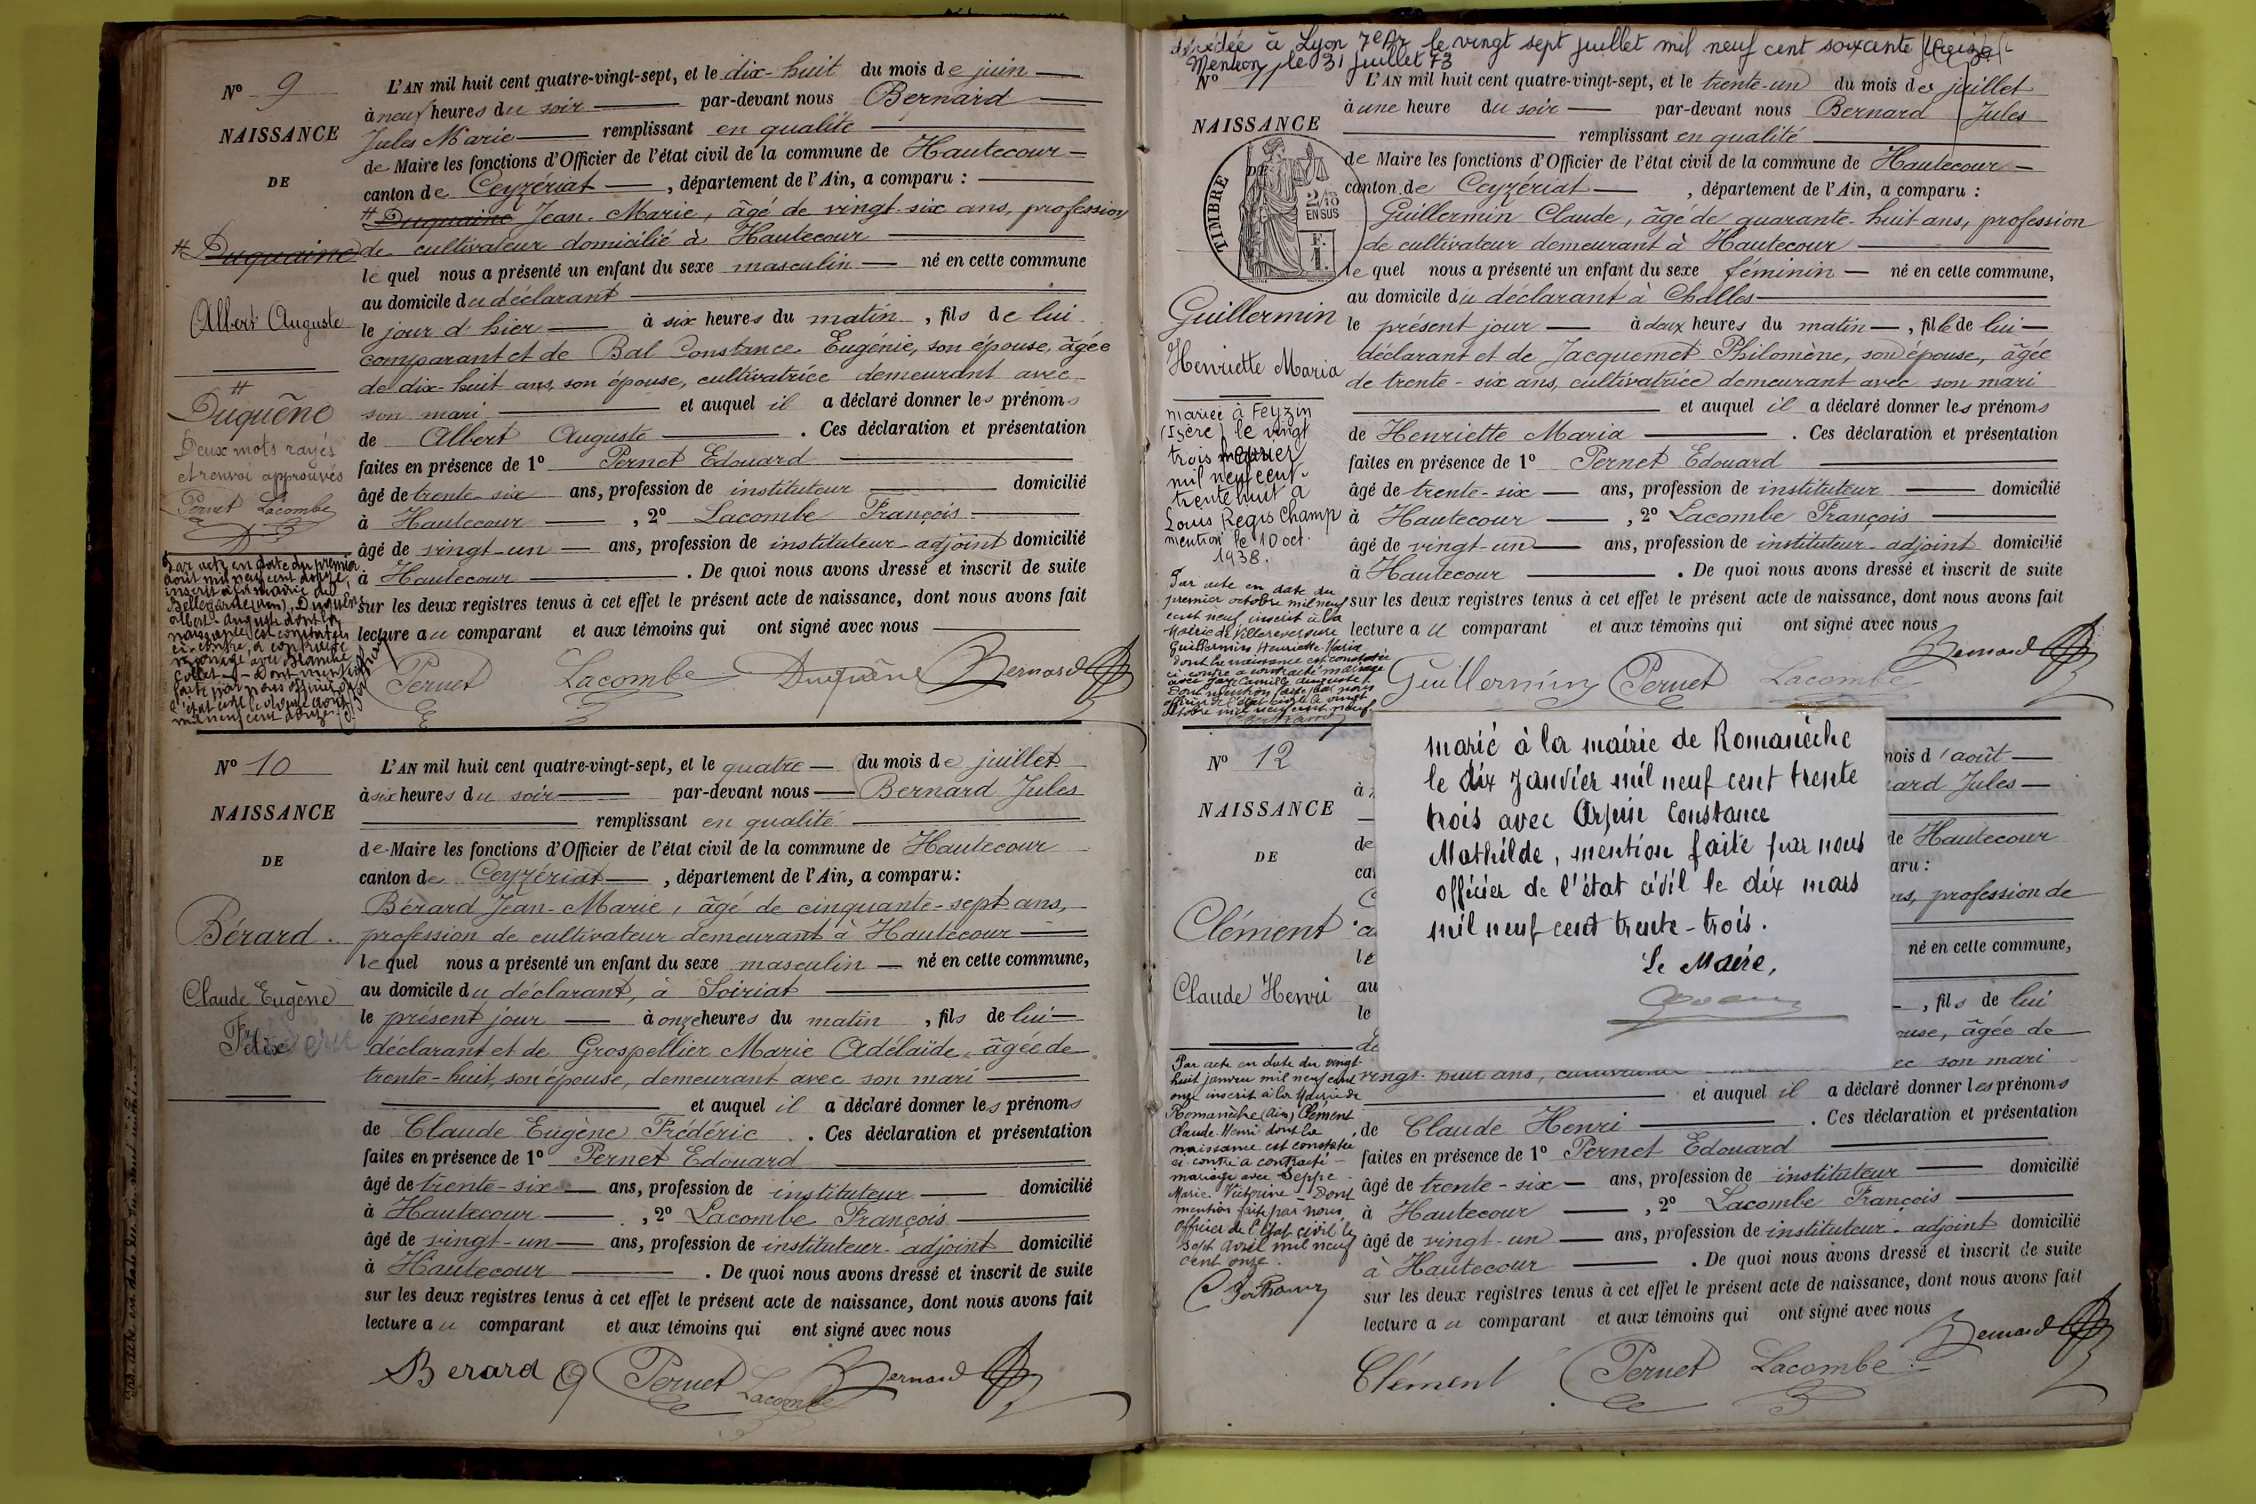 Nº 9
NAISSANCE
DE
# Duquaine
Albert Auguste
#
Duquêne
Deux mots rayés
et renvoi approuvés
Pernet Lacombe
Par acte en date du premier
août mil neuf cent douze,
inscrit à la mairie de
Bellegarde (Ain), Duquêne
Albert Auguste dont la
naissance est constatée
ci-contre, a contracté
mariage avec Blanche
Collet — Dont mention
faite par nous officier de
l'état civil
mil neuf cent douze.
L'AN mil huit cent quatre-vingt-sept, et le dix-huit du mois de juin
à neuf heures du soir par-devant nous Bernard
Jules Marie remplissant en qualité
de Maire les fonctions d'Officier de l'état civil de la commune de Hautecour
canton de Ceyzériat, département de l'Ain, a comparu :
# Duquaine Jean-Marie, âgé de vingt-six ans, profession
de cultivateur domicilié à Hautecour
lequel nous a présenté un enfant du sexe masculin né en cette commune
au domicile du déclarant
le jour d'hier à six heures du matin, fils de lui
comparant et de Bal Constance Eugénie, son épouse, âgée
de dix-huit ans, son épouse, cultivatrice demeurant avec
son mari et auquel il a déclaré donner les prénoms
de Albert Auguste. Ces déclaration et présentation
faites en présence de 1º Pernet Edouard
âgé de trente-six ans, profession de instituteur domicilié
à Hautecour, 2º Lacombe François
âgé de vingt-un ans, profession de instituteur-adjoint domicilié
à Hautecour. De quoi nous avons dressé et inscrit de suite
sur les deux registres tenus à cet effet le présent acte de naissance, dont nous avons fait
lecture au comparant et aux témoins qui ont signé avec nous
Pernet Lacombe Duquêne Bernard
Nº 10
NAISSANCE
DE
Bérard
Claude Eugène
Félix
L'AN mil huit cent quatre-vingt-sept, et le quatre du mois de juillet
à six heures du soir par-devant nous Bernard Jules
remplissant en qualité
de Maire les fonctions d'Officier de l'état civil de la commune de Hautecour
canton de Ceyzériat, département de l'Ain, a comparu:
Bérard Jean-Marie, âgé de cinquante-sept ans,
profession de cultivateur demeurant à Hautecour
lequel nous a présenté un enfant du sexe masculin né en cette commune,
au domicile du déclarant, à Soiriat
le présent jour à onze heures du matin, fils de lui
déclarant et de Grospellier Marie Adélaïde, âgée de
trente-huit, son épouse, demeurant avec son mari
et auquel il a déclaré donner les prénoms
de Claude Eugène Frédéric. Ces déclaration et présentation
faites en présence de 1º Pernet Edouard
âgé de trente-six ans, profession de instituteur domicilié
à Hautecour, 2º Lacombe François
âgé de vingt-un ans, profession de instituteur-adjoint domicilié
à Hautecour. De quoi nous avons dressé et inscrit de suite
sur les deux registres tenus à cet effet le présent acte de naissance, dont nous avons fait
lecture au comparant et aux témoins qui ont signé avec nous
Berard Pernet Lacombe Bernard
décédée à Lyon 7e Ar le vingt sept juillet mil neuf cent soixante treize
Mention le 31 juillet 73
Nº 11
NAISSANCE
DE
TIMBRE
2/10
EN SUS
F.
1.
Guillermin
Henriette Maria
mariée à Feyzin
(Isère) le vingt
trois
mil neuf cent
trente huit à
Louis Régis Champ
mention le 10 oct.
1938.
Par acte en date du
premier octobre mil neuf
cent neuf inscrit à la
Mairie de Villereversure
Guillermin Henriette Maria
dont la naissance est constatée
ci-contre a contracté mariage
Dont mention faite par nous
officier de l'état civil le vingt
octobre mil neuf cent neuf.
L'AN mil huit cent quatre-vingt-sept, et le trente-un du mois de juillet
à une heure du soir par-devant nous Bernard Jules
remplissant en qualité
de Maire les fonctions d'Officier de l'état civil de la commune de Hautecour
canton de Ceyzériat, département de l'Ain, a comparu :
Guillermin Claude, âgé de quarante-huit ans, profession
de cultivateur demeurant à Hautecour
lequel nous a présenté un enfant du sexe féminin né en cette commune,
au domicile du déclarant à Challes
le présent jour à deux heures du matin, fille de lui
déclarant et de Jacquemet Philomène, son épouse, âgée
de trente-six ans, cultivatrice demeurant avec son mari
et auquel il a déclaré donner les prénoms
de Henriette Maria. Ces déclaration et présentation
faites en présence de 1º Pernet Edouard
âgé de trente-six ans, profession de instituteur domicilié
à Hautecour, 2º Lacombe François
âgé de vingt-un ans, profession de instituteur-adjoint domicilié
à Hautecour. De quoi nous avons dressé et inscrit de suite
sur les deux registres tenus à cet effet le présent acte de naissance, dont nous avons fait
lecture au comparant et aux témoins qui ont signé avec nous
Guillermin Pernet Lacombe Bernard
Nº 12
NAISSANCE
DE
Clément
Claude Henri
Par acte en date du vingt-
huit janvier mil neuf cent
onze inscrit à la Mairie de
Romanèche (Ain) Clément
Claude Henri dont la
naissance est constatée
ci-contre a contracté
mariage avec Seppe
Marie Victorine — Dont
mention faite par nous
officier de l'état civil le
sept avril mil neuf
cent onze.
marié à la mairie de Romanèche
le dix Janvier mil neuf cent trente
trois avec Orpin Constance
Mathilde, mention faite par nous
officier de l'état civil le dix mars
mil neuf cent trente-trois.
Le Maire,
mois d'août
ard Jules
de Hautecour
aru :
ns, profession de
né en cette commune,
, fils de lui
ouse, âgée de
ec son mari
vingt-huit ans,
et auquel il a déclaré donner les prénoms
de Claude Henri. Ces déclaration et présentation
faites en présence de 1º Pernet Edouard
âgé de trente-six ans, profession de instituteur domicilié
à Hautecour, 2º Lacombe François
âgé de vingt-un ans, profession de instituteur-adjoint domicilié
à Hautecour. De quoi nous avons dressé et inscrit de suite
sur les deux registres tenus à cet effet le présent acte de naissance, dont nous avons fait
lecture au comparant et aux témoins qui ont signé avec nous
Clément Pernet Lacombe Bernard